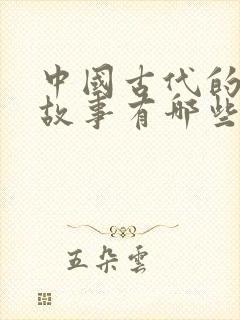 中國古代的
故事有哪些
五朵雲